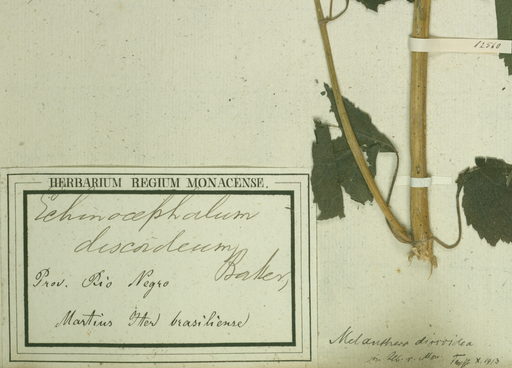 12560
HERBARIUM REGIUM MONACENSE.
Echinocephalum
discoideum
Baker,
Prov. Rio Negro
Martius Iter brasiliense
Melanthera
X. 1913